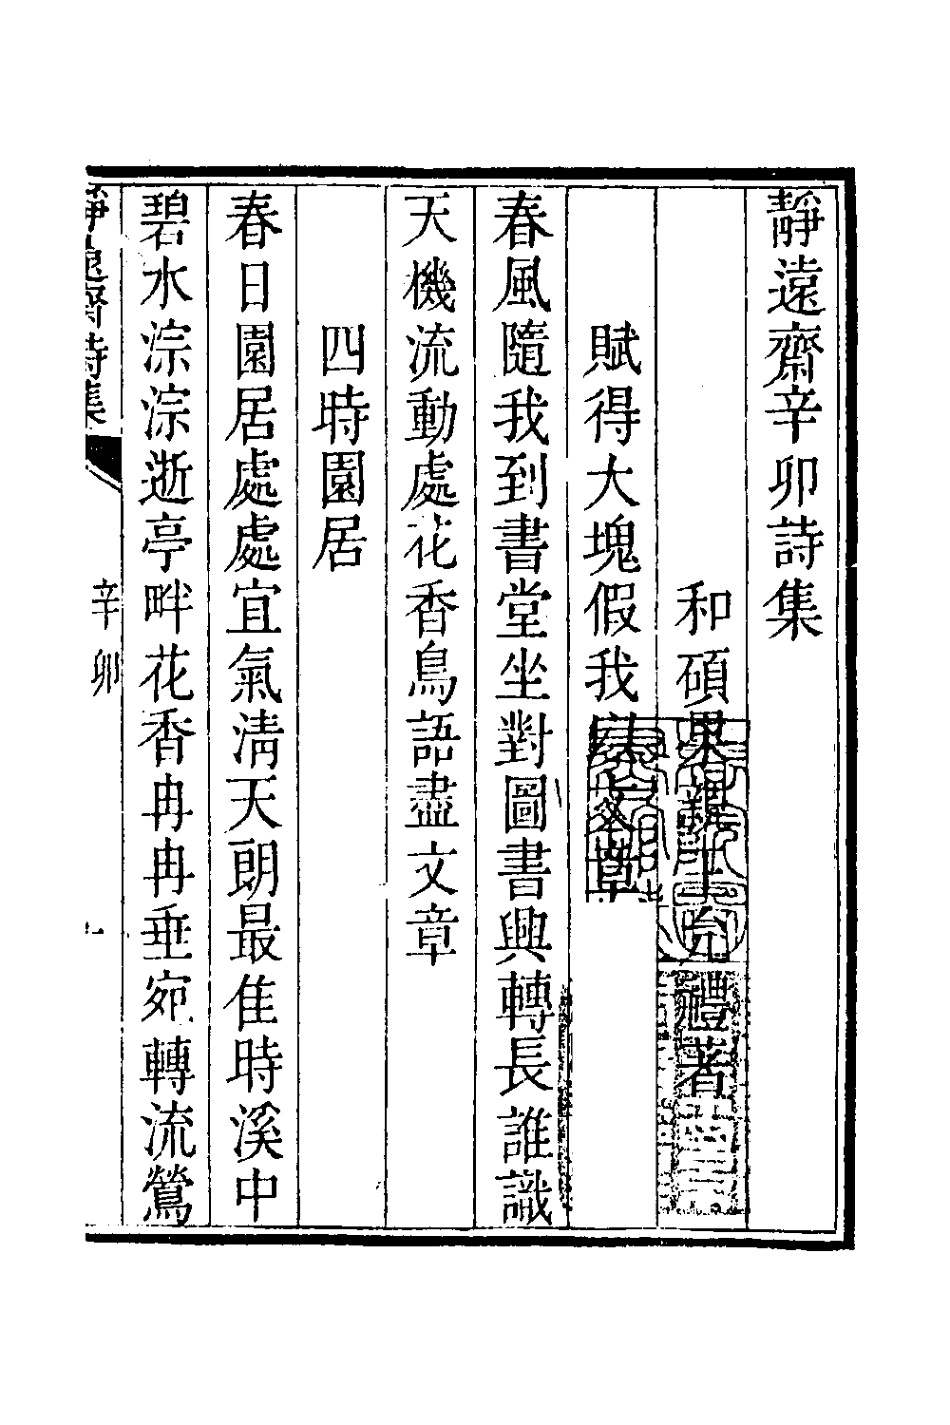 靜遠齋辛卯詩集
和碩果親王允禮著
賦得大塊假我以文章
春風隨我到書堂坐對圖書興轉長誰識
天機流動處花香鳥語盡文章
四時園居
春日園居處處宜氣清天朗最佳時溪中
碧水淙淙逝亭畔花香冉冉垂宛轉流鶯
靜遠齋詩集
辛卯
一